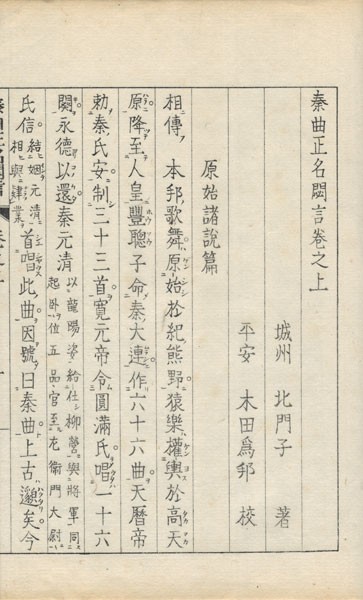 秦曲正名閟言卷之上
城州 北門子 著
平安 木田爲邦 校
原始諸說篇
相傳 本邦歌舞原始於紀熊野猿樂權輿於高天
原降至人皇豐聰子命秦大連作六十六曲天曆帝
勅秦氏安制三十三首寬元帝令圓滿氏唱一十六
闋永德以還秦元清
以龍陽姿給仕柳營與將軍同
起臥位五品官至左衛門大尉
氏信
結姻元清
相與肄業
首唱此曲因號曰秦曲上古邈矣今